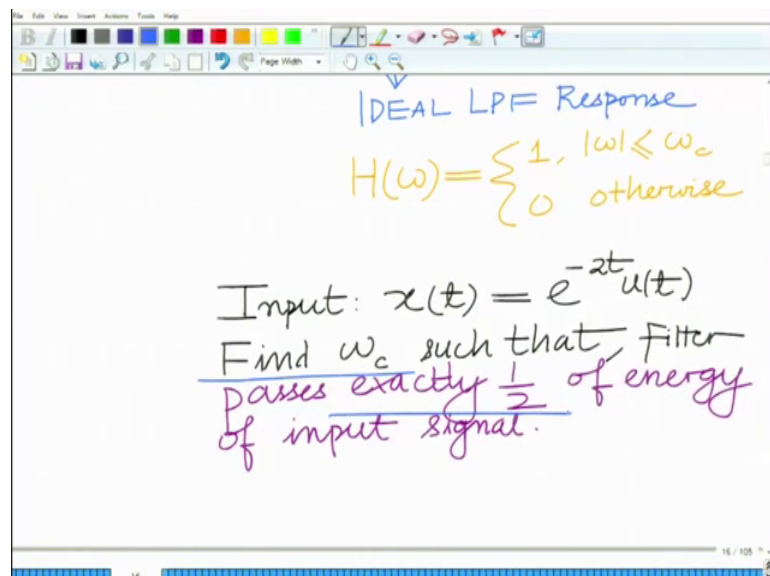 File Edit View Insert Actions Tools Help
B I
Page Width
IDEAL LPF Response
H(ω) = { 1, |ω| ≤ ω_c
0 otherwise
Input: x(t) = e^{-2t} u(t)
Find ω_c such that, Filter
passes exactly 1/2 of energy
of input signal.
16 / 105
16